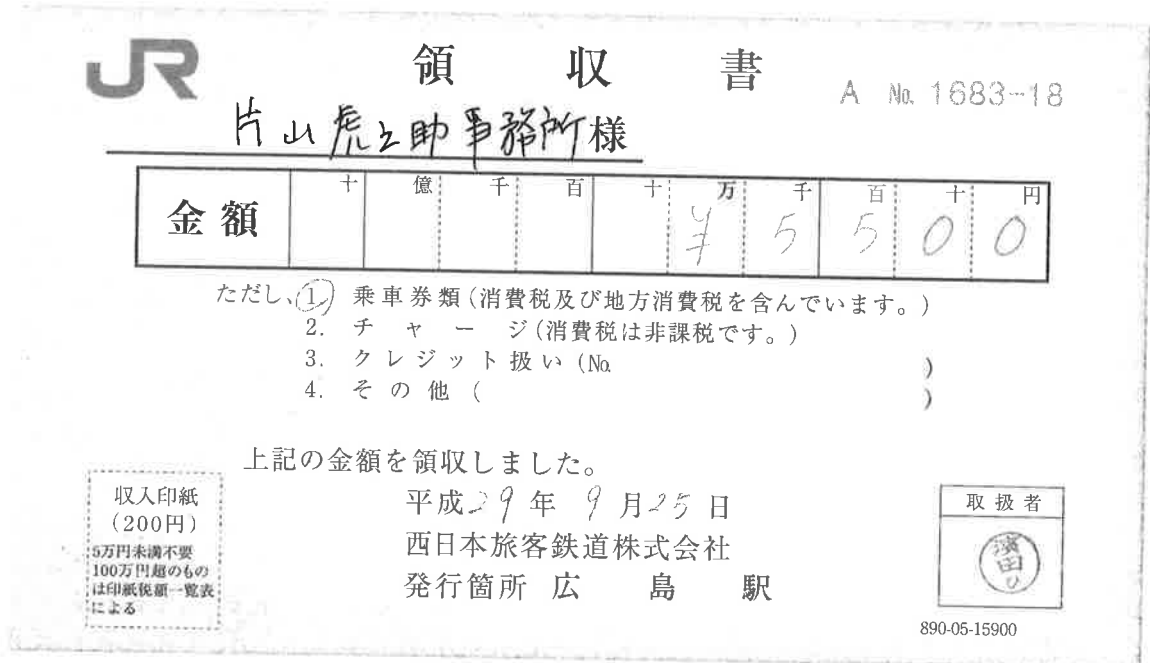 JR
領収書
A No. 1683-18
片山虎之助事務所様
金額 十 億 千 百 十 万 千 百 十 円
¥ 5 5 0 0
ただし、1. 乗車券類(消費税及び地方消費税を含んでいます。)
2. チャージ(消費税は非課税です。)
3. クレジット扱い(No. )
4. その他( )
上記の金額を領収しました。
平成29年9月25日
西日本旅客鉄道株式会社
発行箇所 広島駅
収入印紙
(200円)
5万円未満不要
100万円超のもの
は印紙税額一覧表
による
取扱者
濱田
ひ
890-05-15900